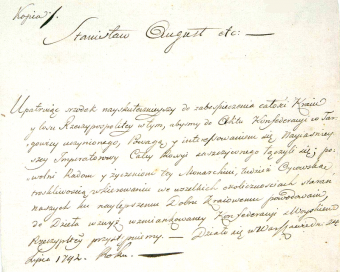 Kopia
Stanisław August etc: —
Upatruiąc srzodek nayskutecznieyszy do zabespieczenia całości Kraiu
y losu Rzeczypospolitey w tym, abyśmy do Aktu Konfederacyi w Tar-
gowicy uczynionego, Powagą y interessowaniem się Nayiaśniey-
szey Imperatorowey Całey Rossyi zaszczyconego łączyli się; po-
wolni Radom y życzeniom tey Monarchini, tudzież Oycowską
troskliwością w kierowaniu we wszelkich okolicznościach staran
naszych ku naylepszemu Dobru Kraiowemu powodowani,
do Dzieła wzwyż wzmiankowaney Konfederacyi
Rzeczyptey przystępuiemy. — Działo się w Warszawie
Lipca 1792. Roku. —